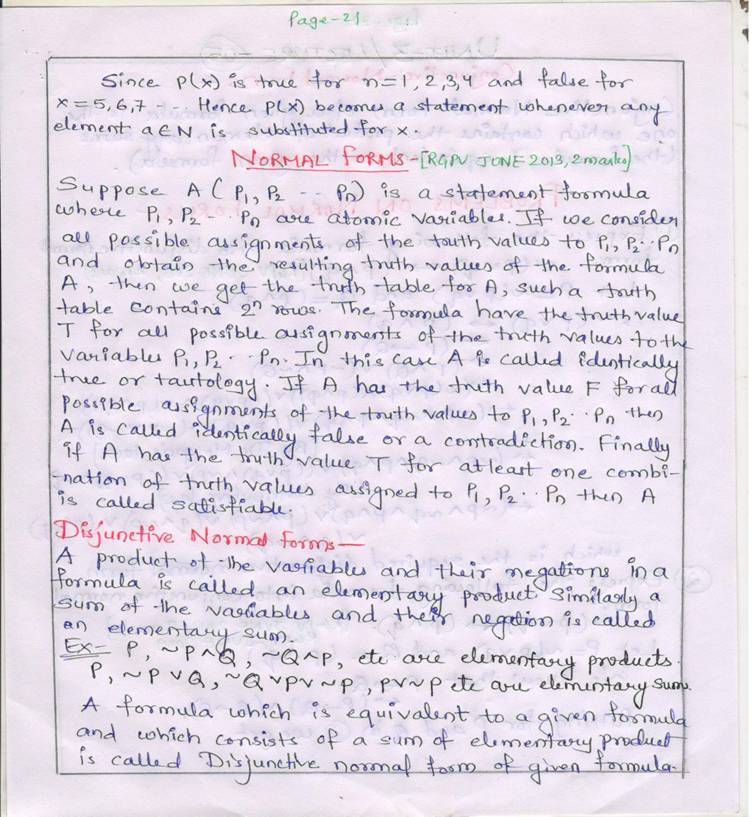 Page-21
Since P(x) is true for n=1,2,3,4 and false for
x=5,6,7 --- Hence P(x) becomes a statement whenever any
element a∈N is substituted for x.
NORMAL FORMS-[RGPV JUNE 2013, 2 marks]
Suppose A (P₁, P₂ -- Pn) is a statement formula
where P₁, P₂ -- Pn are atomic variables. If we consider
all possible assignments of the truth values to P₁, P₂..Pn
and obtain the resulting truth values of the formula
A, then we get the truth table for A, such a truth
table contains 2ⁿ rows. The formula have the truth value
T for all possible assignments of the truth values to the
variables P₁, P₂.. Pn. In this case A is called identically
true or tautology. If A has the truth value F for all
possible assignments of the truth values to P₁, P₂.. Pn then
A is called identically false or a contradiction. Finally
if A has the truth value T for atleast one combi-
-nation of truth values assigned to P₁, P₂.. Pn then A
is called satisfiable.
Disjunctive Normal forms—
A product of the variables and their negations in a
formula is called an elementary product Similarly a
sum of the variables and their negation is called
an elementary sum.
Ex- P, ~P∧Q, ~Q∧P, etc are elementary products.
P, ~P∨Q, ~Q∨P∨~P, P∨~P etc are elementary sum.
A formula which is equivalent to a given formula
and which consists of a sum of elementary product
is called Disjunctive normal form of given formula.